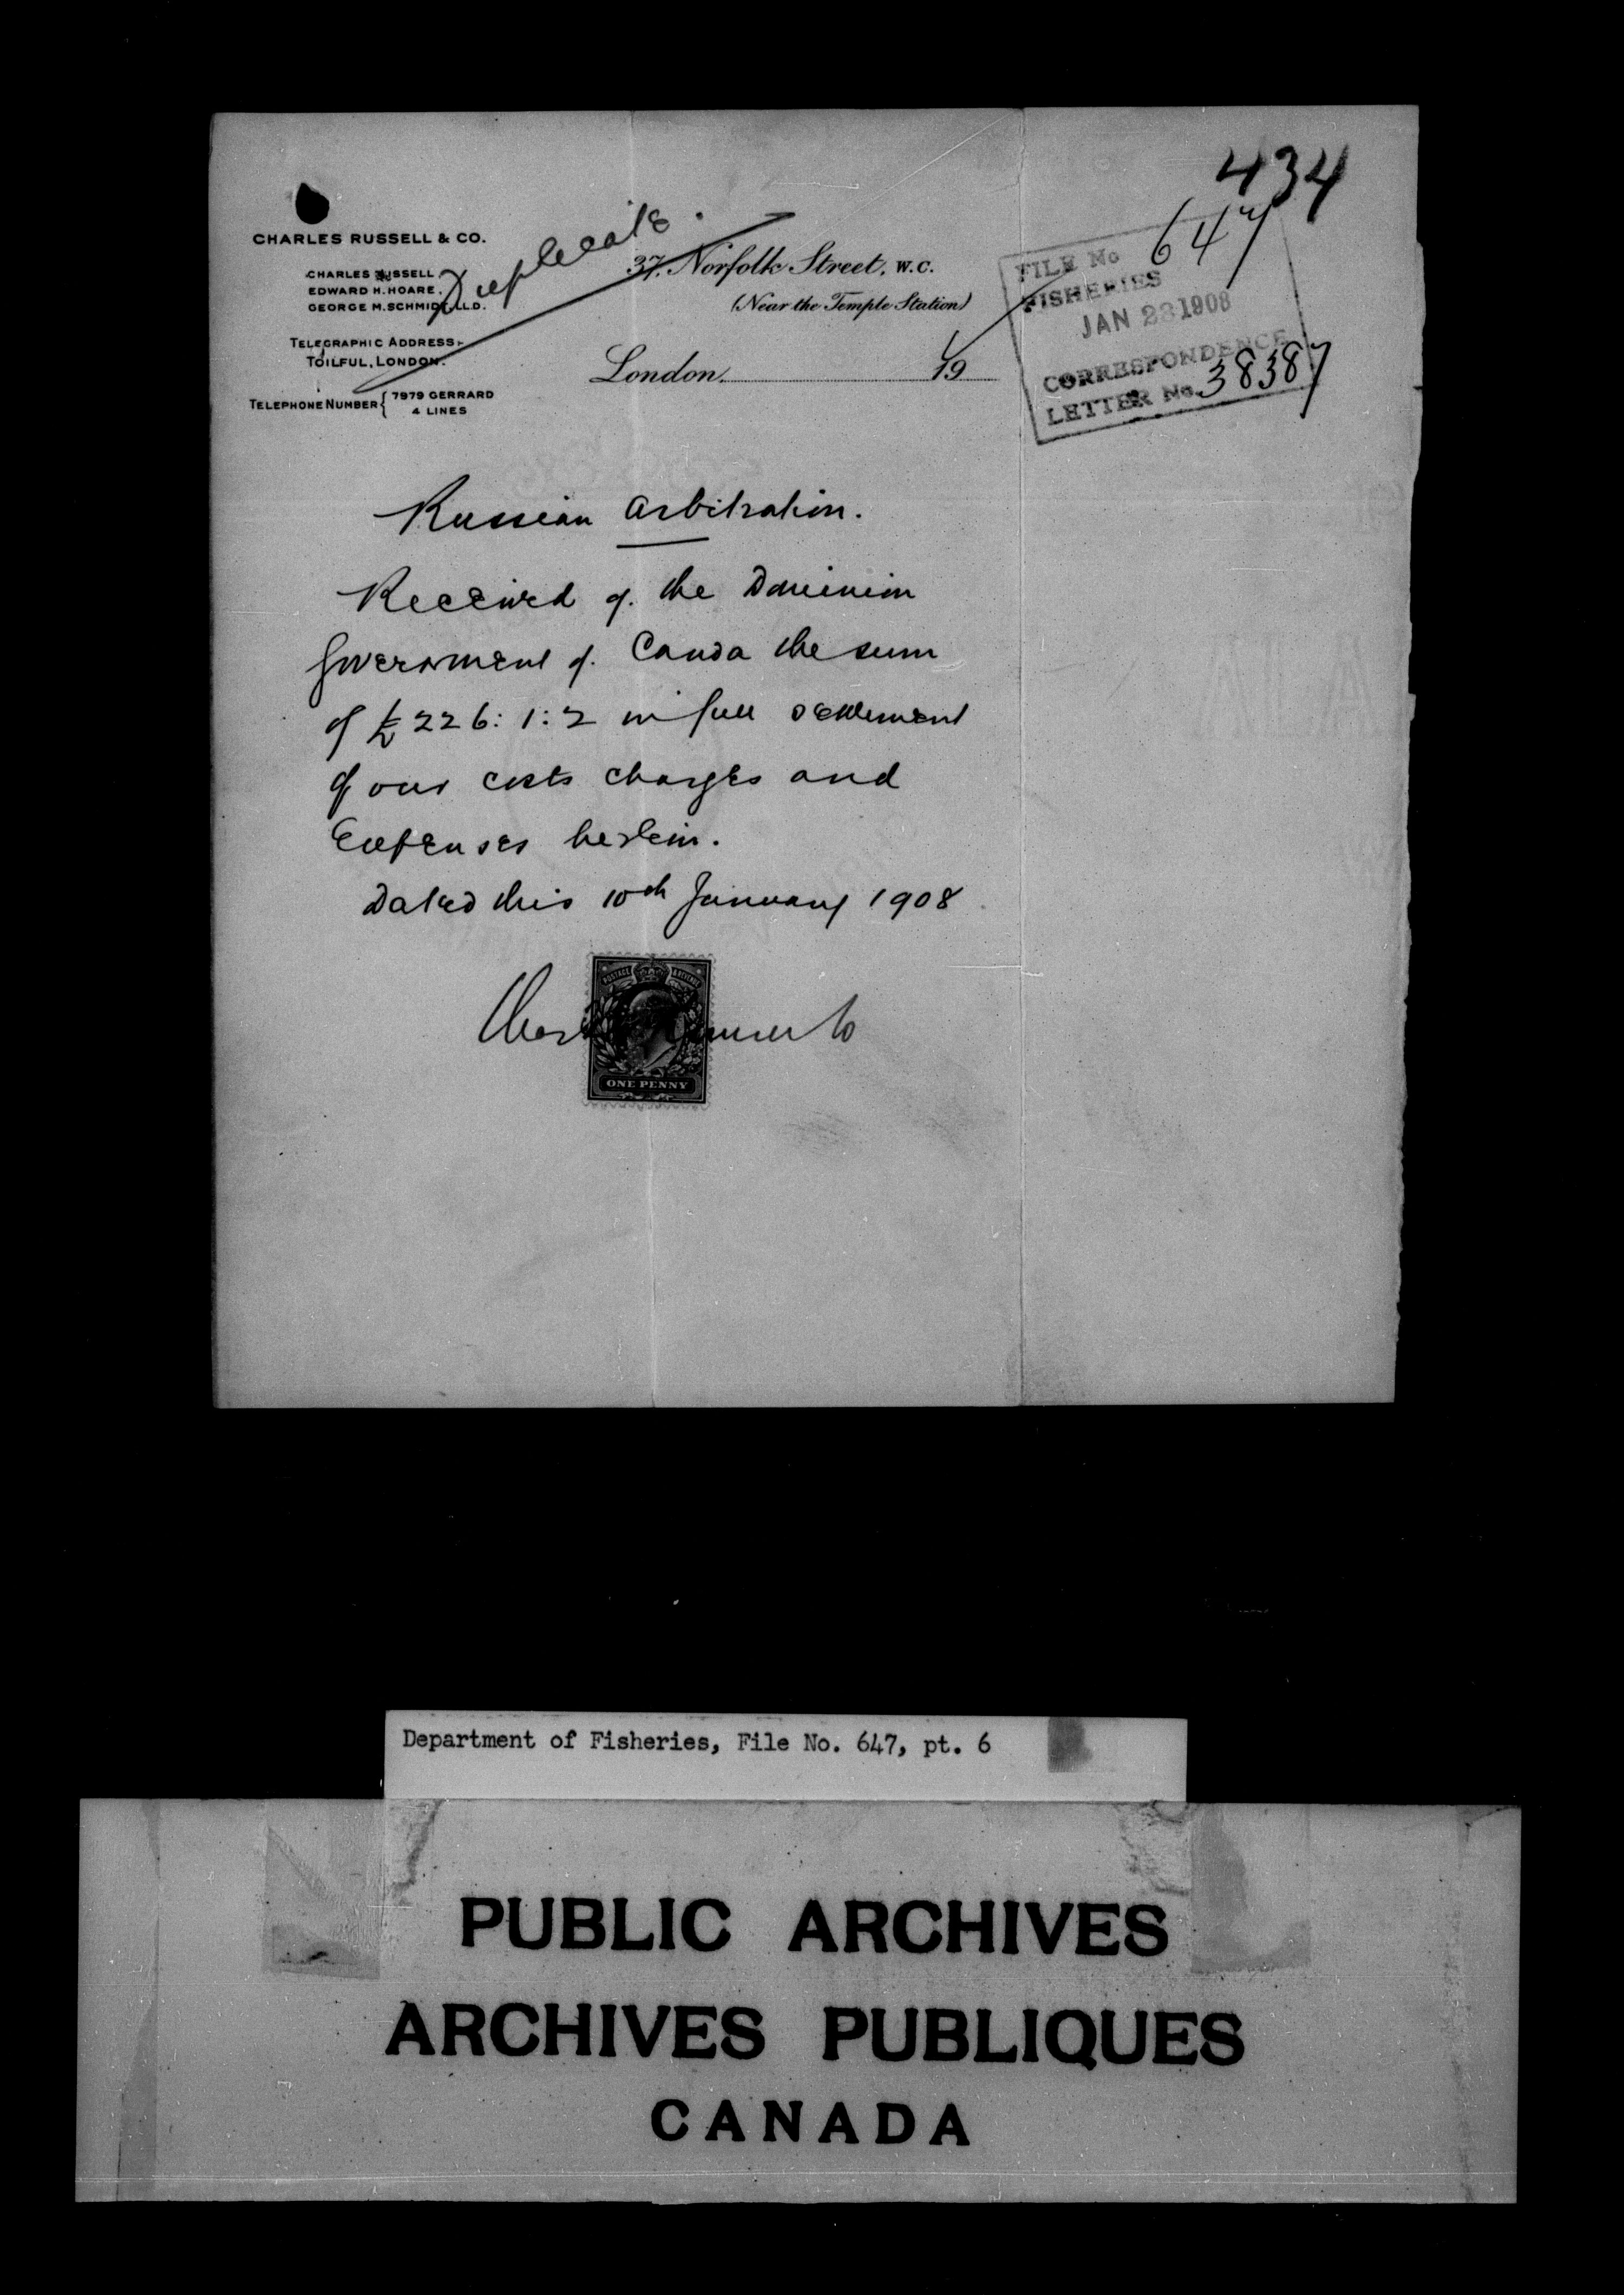 434
CHARLES RUSSELL & CO.
CHARLES RUSSELL
EDWARD H. HOARE.
GEORGE M. SCHMIDT, LL.D.
TELEGRAPHIC ADDRESS:-
TOILFUL, LONDON.
TELEPHONE NUMBER { 7979 GERRARD
4 LINES
Duplicate.
37, Norfolk Street, W.C.
(Near the Temple Station)
London, 19
FILE No 647
FISHERIES
JAN 23 1908
CORRESPONDENCE
LETTER No. 38387
Russian Arbitration.
Received of the Dominion
Government of Canda the sum
of £226:1:2 in full settlement
of our costs charges and
Expenses herein.
Dated this 10th January 1908
Charles Russell & Co
POSTAGE REVENUE
ONE PENNY
Department of Fisheries, File No. 647, pt. 6
PUBLIC ARCHIVES
ARCHIVES PUBLIQUES
CANADA